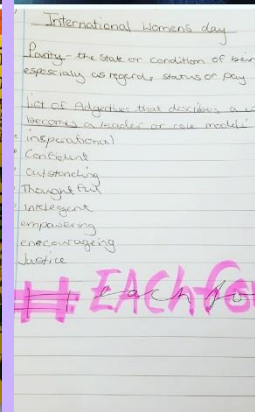 International Womens day
Parity - the state or condition of bein
espescially as regards status or pay
List of Adjectives that describes a w
becomes a leader or role model
insperational
Confident
outstanding
Thoughtful
intelegent
empowering
encourageing
Justice
# EACHfo
each fo